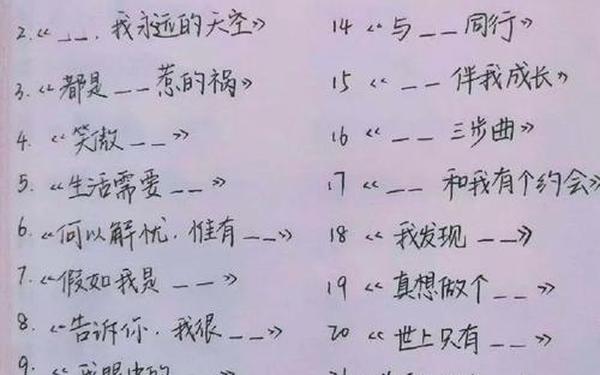 2.《__,我永远的天空》
3.《都是__惹的祸》
4.《笑傲__》
5.《生活需要__》
6.《何以解忧,惟有__》
7.《假如我是__》
8.《告诉你,我很__》
9.《我眼中的__
14《与__同行》
15《__伴我成长》
16《__三步曲》
17《__和我有个约会》
18《我发现__》
19《真想做个__》
20《世上只有__》